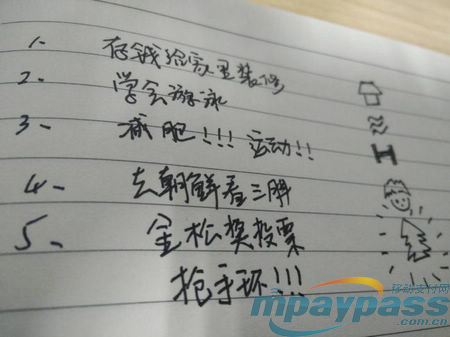 1. 存钱给家里装修
2. 学会游泳
3. 减肥!!! 运动!!
4. 去朝鲜看三胖
5. 金松奖投票
抢手环!!!
移动支付网
mpaypass
.com.cn